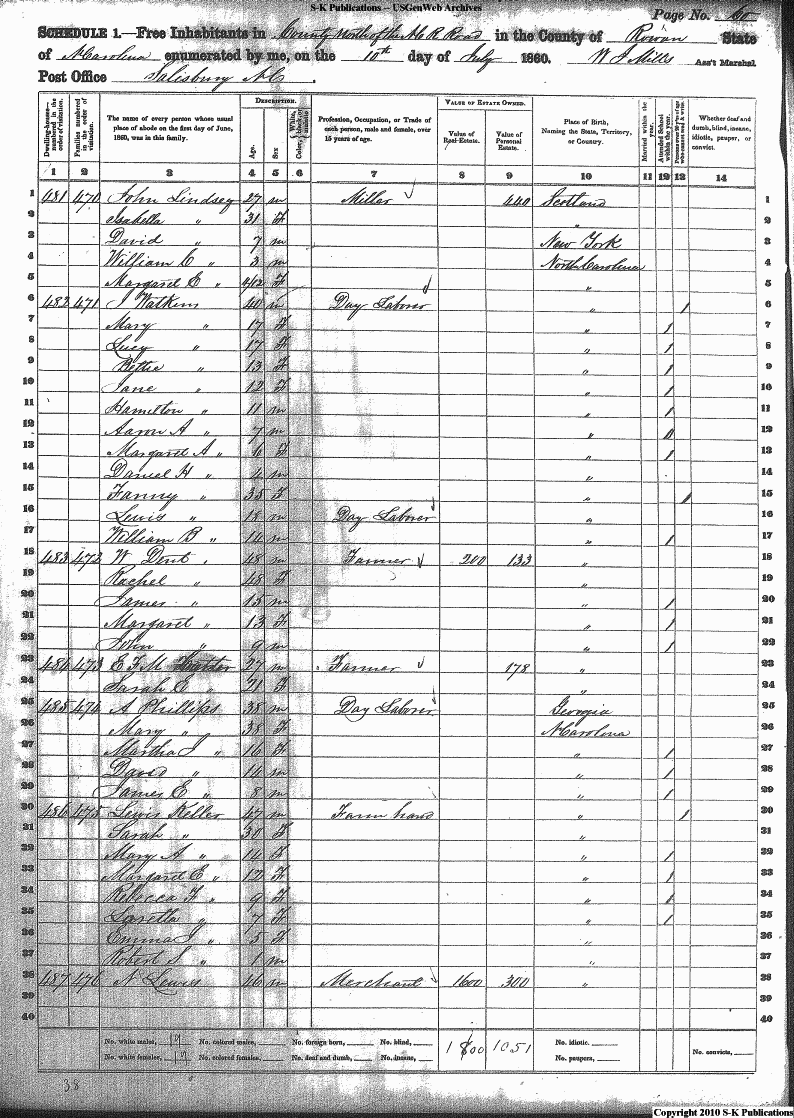 S-K Publications -- USGenWeb Archives
Page No. 60
SCHEDULE 1.—Free Inhabitants in County North of the R Road in the County of Rowan State
of N Carolina enumerated by me, on the 10th day of July 1860. W J Mills Ass't Marshal
Post Office Salisbury N.C.
Dwelling-houses—numbered in the order of visitation. Families numbered in the order of visitation. The name of every person whose usual place of abode on the first day of June, 1860, was in this family. DESCRIPTION. Age. Sex. Color, White, black or mulatto Profession, Occupation, or Trade of each person, male and female, over 15 years of age. VALUE OF ESTATE OWNED. Value of Real-Estate. Value of Personal Estate. Place of Birth, Naming the State, Territory, or Country. Married within the year. Attended School within the year. Persons over 20 y'rs of age who cannot read & write. Whether deaf and dumb, blind, insane, idiotic, pauper, or convict.
1 2 3 4 5 6 7 8 9 10 11 12 13 14
1 481 470 John Lindsey 27 m Miller 440 Scotland 1
2 Isabella " 31 F " 2
3 David " 7 m New York 3
4 William C " 3 m North Carolina 4
5 Margaret E " 4/12 F " 5
6 482 471 J Watkins 40 m Day Laborer " / 6
7 Mary " 17 F " / 7
8 Lucy " 17 F " / 8
9 Bettie " 13 F " / 9
10 Jane " 12 F " / 10
11 Hamilton " 11 m " / 11
12 Aaron A " 7 m " / 12
13 Margaret A " 6 F " / 13
14 Daniel H " 4 m " 14
15 Fanny " 35 F " / 15
16 Lewis " 18 m Day Laborer " 16
17 William B " 14 m " / 17
18 483 472 W Dent " 48 m Farmer 200 133 " 18
19 Rachel " 48 F " 19
20 James " 15 m " / 20
21 Margaret " 13 F " / 21
22 John " 9 m " / 22
23 484 473 E F M 27 m Farmer 178 " 23
24 Sarah E " 21 F " 24
25 485 474 A Phillips 38 m Day Laborer Georgia 25
26 Mary " 38 F N Carolina 26
27 Martha J " 16 F " / 27
28 David " 14 m " / 28
29 James E " 8 m " / 29
30 486 475 Lewis Keller 47 m Farm hand " / 30
31 Sarah " 30 F " 31
32 Mary A " 14 F " / 32
33 Margaret E " 12 F " / 33
34 Rebecca F " 9 F " / 34
35 Loretta " 7 F " / 35
36 Emma J " 5 F " 36
37 Robert S " 1 m " 37
38 487 476 N Lewis 46 m Merchant 1600 300 " 38
39 39
40 40
No. white males, 19 No. colored males, No. foreign born, No. blind, 1800 1051 No. idiotic,
No. white females, 19 No. colored females, No. deaf and dumb, No. insane, No. paupers, No. convicts,
38
Copyright 2010 S-K Publications